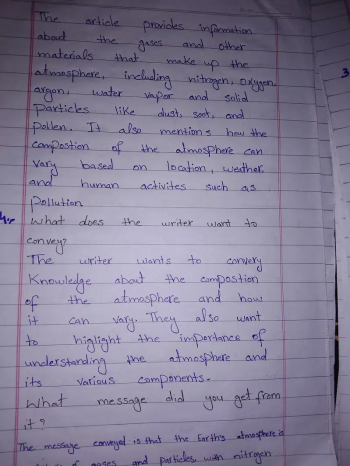 The article provides information
about the gases and other
materials that make up the
atmosphere, including nitrogen, oxygen
argon, water vapor and solid
particles like dust, soot, and
pollen. It also mentions how the
compostion of the atmosphere can
vary based on location, weather
and human activites such as
pollution
what does the writer want to
convey?
The writer wants to convery
Knowledge about the compostion
of the atmosphere and how
it can vary. They also want
to higlight the importance of
understanding the atmosphere and
its various components.
What message did you get from
it?
The message conveyed is that the Earths atmosphere is
of gases and particles, with nitrogen